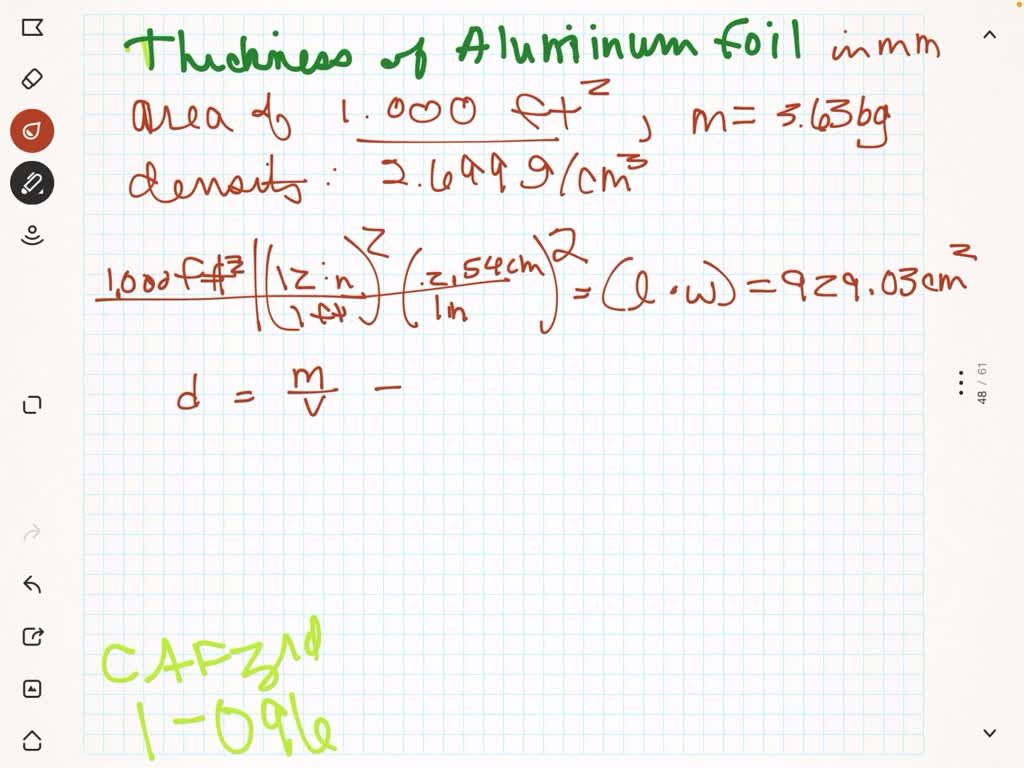 Thickness of Aluminum foil in mm
area of 1.000 ft², m = 3.636g
density: 2.699 g/cm³
1.000 ft² (12 in / 1 ft)² (2.54 cm / 1 in)² = (l · w) = 929.03 cm²
d = m/V –
48 / 61
CAF3rd
1-096